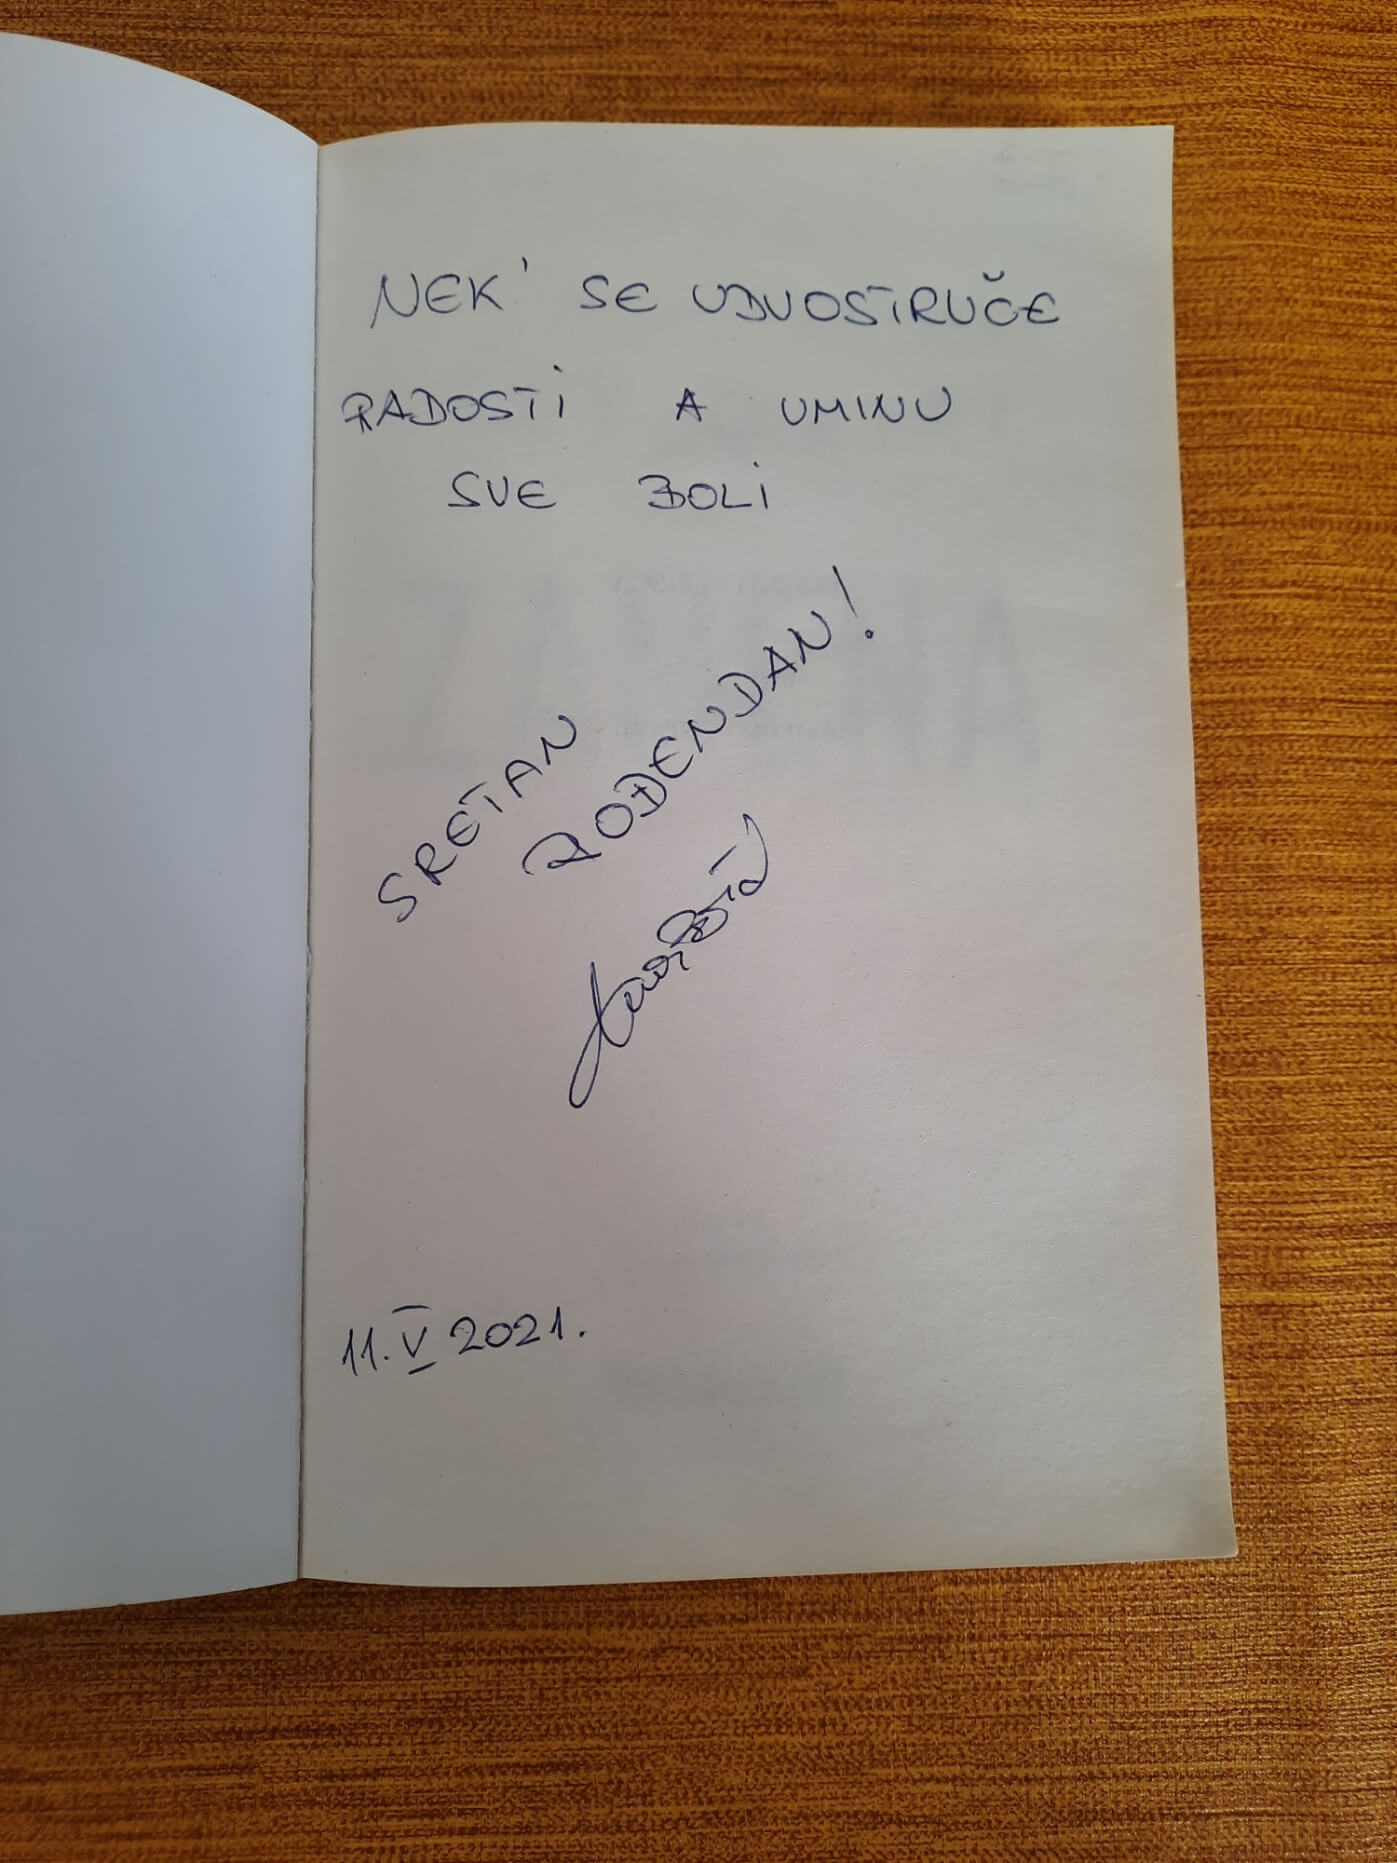 NEK' SE UDVOSTRUČE
RADOSTI A UMINU
SVE BOLI
SRETAN
ROĐENDAN!
11. V 2021.